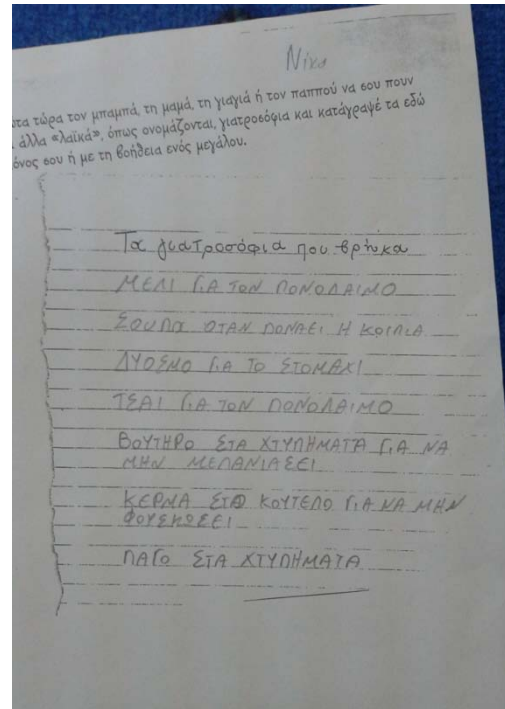 Νίκο
ώτα τώρα τον μπαμπά, τη μαμά, τη γιαγιά ή τον παππού να σου πουν
άλλα «λαϊκά», όπως ονομάζονται, γιατροσόφια και κατάγραψέ τα εδώ
όνος σου ή με τη βοήθεια ενός μεγάλου.
Τα γιατροσόφια που βρήκα
ΜΕΛΙ ΓΙΑ ΤΟΝ ΠΟΝΟΛΑΙΜΟ
ΣΟΥΠΑ ΟΤΑΝ ΠΟΝΑΕΙ Η ΚΟΙΛΙΑ
ΔΥΟΣΜΟ ΓΙΑ ΤΟ ΣΤΟΜΑΧΙ
ΤΣΑΙ ΓΙΑ ΤΟΝ ΠΟΝΟΛΑΙΜΟ
ΒΟΥΤΗΡΟ ΣΤΑ ΧΤΥΠΗΜΑΤΑ ΓΙΑ ΝΑ
ΜΗΝ ΜΕΛΑΝΙΑΣΕΙ
ΚΕΡΜΑ ΣΤΟ ΚΟΥΤΕΛΟ ΓΙΑ ΝΑ ΜΗΝ
ΦΟΥΣΚΩΣΕΙ
ΠΑΓΟ ΣΤΑ ΧΤΥΠΗΜΑΤΑ